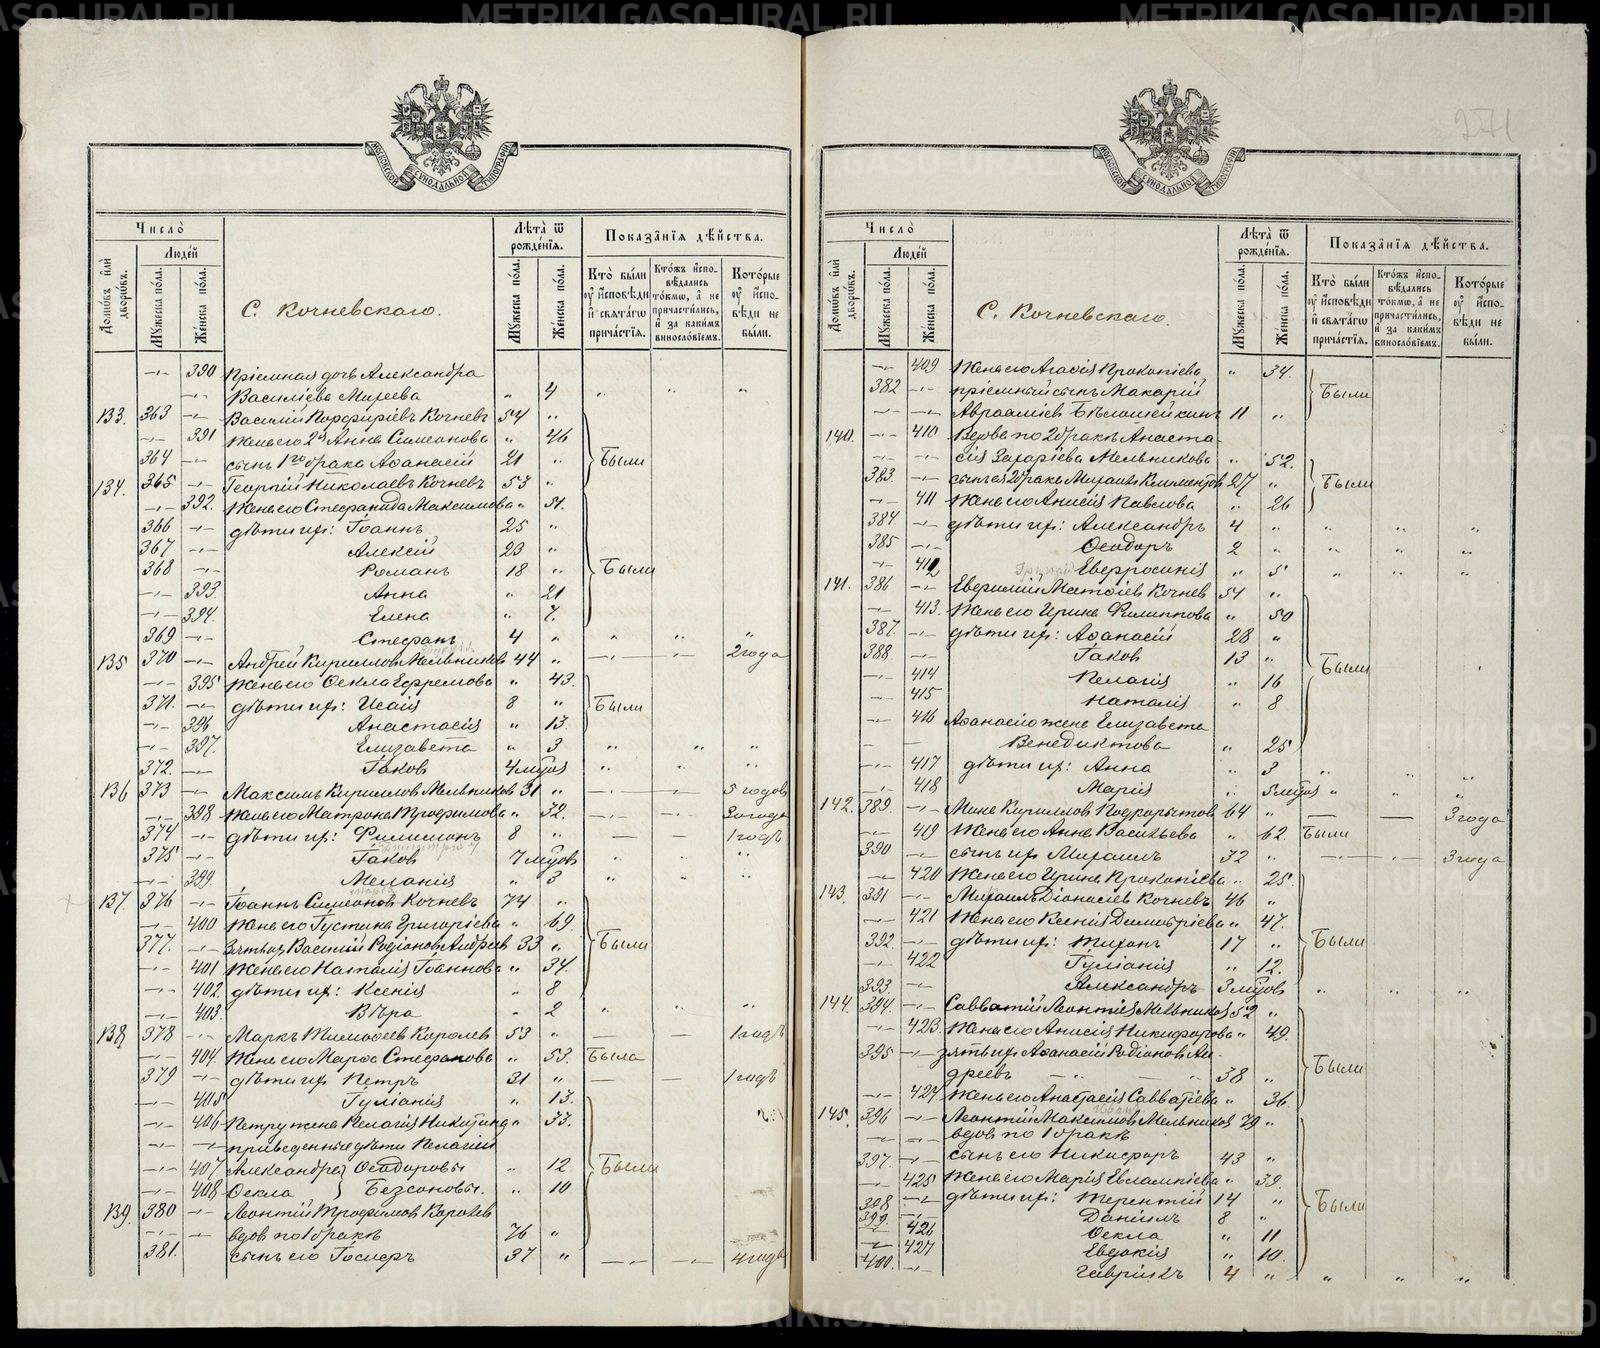 METRIKI.GASO-URAL.RU
МОСКОВСКОЙ СѴНОДАЛЬНОЙ ТИПОГРАФІИ
Число̀
Людей
Домѡвъ или дворѡвъ.
Мꙋжеска пола.
Женска пола.
Лѣта̀ ѿ рожденїѧ.
Мꙋжеска пола.
Женска пола.
Показанїѧ дѣйства.
Кто̀ были оу исповѣди и свѧтагѡ причастїѧ.
Ктожъ исповѣдались токмѡ, а не причастились, и за какимъ винословїемъ.
Которые оу исповѣди не были.
С. Кочневскаго.
-"- 390 Пріемная дочь Александра
-"- Василіева Михеева " 4 " " "
133. 363 -"- Василій Порфиріевъ Кочневъ 54 "
-"- 391 Жена его 2я Анна Симеонова " 46
364 -"- сынъ 1го брака Аѳанасій 21 " Были
134. 365 -"- Георгій Николаевъ Кочневъ 53 "
-"- 392. Жена его Стефанида Максимова " 51.
366 -"- дѣти их: Іоаннъ 25 "
367 -"- Алексій 23 "
368 -"- Романъ 18 " Были
-"- 393. Анна " 21
-"- 394. Елена " 7.
369 -"- Стефанъ 4 " " " "
135 370 -"- Андрей Кирилловъ Мельниковъ 44 " -"- -"- 2 года
-"- 395 Жена его Ѳекла Ефремова " 43.
371. -"- дѣти их: Исаія 8 " Были
-"- 396 Анастасія " 13.
-"- 397. Елизавета " " 3 " " "
372. -"- Іаковъ 4 мѣсяц " " "
136 373 -"- Максимъ Кирилловъ Мельниковъ 31 " 5 годовъ
-"- 398 Жена его Матрона Трофимова " 32. -"- -"- 3 года
374 -"- дѣти их: Филимонъ 8 " — — 1 годъ
375 -"- Іаковъ 7 мѣсяцов " " "
-"- 399. Меланія " 3 " " "
137. 376 -"- Іоаннъ Симеоновъ Кочневъ 74 "
-"- 400 Жена его Іустина Григоріева " 69
377. -"- Зять их Василій Родіоновъ Андреев 33 " Были
-"- 401 Жена его Наталія Іоаннова " 34.
-"- 402. дѣти их: Ксенія " 8
-"- 403. Вѣра " 2 " " "
138 378 -"- Маркъ Тимоѳеев Королев 53 " — — 1 годъ
-"- 404. Жена его Марѳа Стефанова " 53. Была
379 -"- дѣти их Петръ 31 " — — 1 годъ
-"- 405 Іуліанія " 13.
-"- 406 Петру жена Пелагія Никитина " 33.
-"- приведенные дѣти Пелагіи
-"- 407 Александра Ѳеодоровы " 12 Были
-"- 408 Ѳекла Безсоновы. " 10
139. 380 -"- Леонтій Трофимовъ Королев
-"- вдов по 1 бракѣ 76 "
381. сынъ его Іосифъ 37 " -"- -"- 4 года
METRIKI.GASO-URAL.RU
МОСКОВСКОЙ СѴНОДАЛЬНОЙ ТИПОГРАФІИ
Число̀
Людей
Домѡвъ или дворѡвъ.
Мꙋжеска пола.
Женска пола.
Лѣта̀ ѿ рожденїѧ.
Мꙋжеска пола.
Женска пола.
Показанїѧ дѣйства.
Кто̀ были оу исповѣди и свѧтагѡ причастїѧ.
Ктожъ исповѣдались токмѡ, а не причастились, и за какимъ винословїемъ.
Которые оу исповѣди не были.
С. Кочневскаго.
-"- 409 Жена его Агаѳія Прокопіева " 34.
382 -"- пріемный сынъ Макарій Были
-"- -"- Авраамиев Бѣлошейкинъ 11 "
140. -"- 410 Вдова по 2 бракѣ Анаста-
-"- сія Захаріева Мельникова " 52.
383. -"- сынъ ея 2 брака Михаилъ Климентов 27 " Были
-"- 411 Жена его Анисія Павлова " 26
384. -"- дѣти их: Александръ 4 " " " "
385 -"- Ѳеодоръ 2 " " " "
-"- 412 Евфросинія " 5 " " "
141. 386 -"- Евфимій Матѳіев Кочнев 54 "
-"- 413. Жена его Ирина Филиппова " 50
387. -"- дѣти их: Аѳанасій 28 "
388 -"- Іаков 13 " Были
-"- 414 Пелагія " 16
-"- 415 Наталія " 8
-"- 416 Аѳанасію жена Елизавета
Венедиктова " 25
-"- 417 дѣти их: Анна " 3 " " "
-"- 418 Марія " 5 мѣсяцов " " "
142. 389. -"- Мина Кириллов Подкорытов 64 " — — 3 года
-"- 419 Жена его Анна Васильева " 62. Были
390 -"- сынъ их Михаилъ 32 " -"- -"- 3 года
-"- 420 Жена его Ирина Прокопіева " 25.
143. 391 -"- Михаилъ Діонисіев Кочневъ 46 "
-"- 421 Жена его Ксенія Димитріева " 47.
392. -"- дѣти их: Тихонъ 17 " Были
-"- 422 Іуліанія " 12.
393. -"- Александръ 3 мѣсяцов " " "
144. 394. -"- Савватій Леонтіев Мельников 52 "
-"- 423. Жена его Анисія Никифорова " 49.
395 -"- зять их Аѳанасій Родіонов Ан-
дреевъ 38 " Были
-"- 424 Жена его Анастасія Савватіева " 36
145. 396 -"- Леонтій Максимов Мельников 79 "
-"- вдов по 1 бракѣ
397. -"- сынъ его Никифоръ 43 "
-"- 425 Жена его Марія Евлампіева " 39.
398 -"- дѣти их: Терентій 14 " Были
399. -"- Даніилъ 8 "
-"- 426 Ѳекла " 11
-"- 427 Евдокія " 10.
400. -"- Гавріилъ 4 " " " "
METRIKI.GASO-URAL.RU